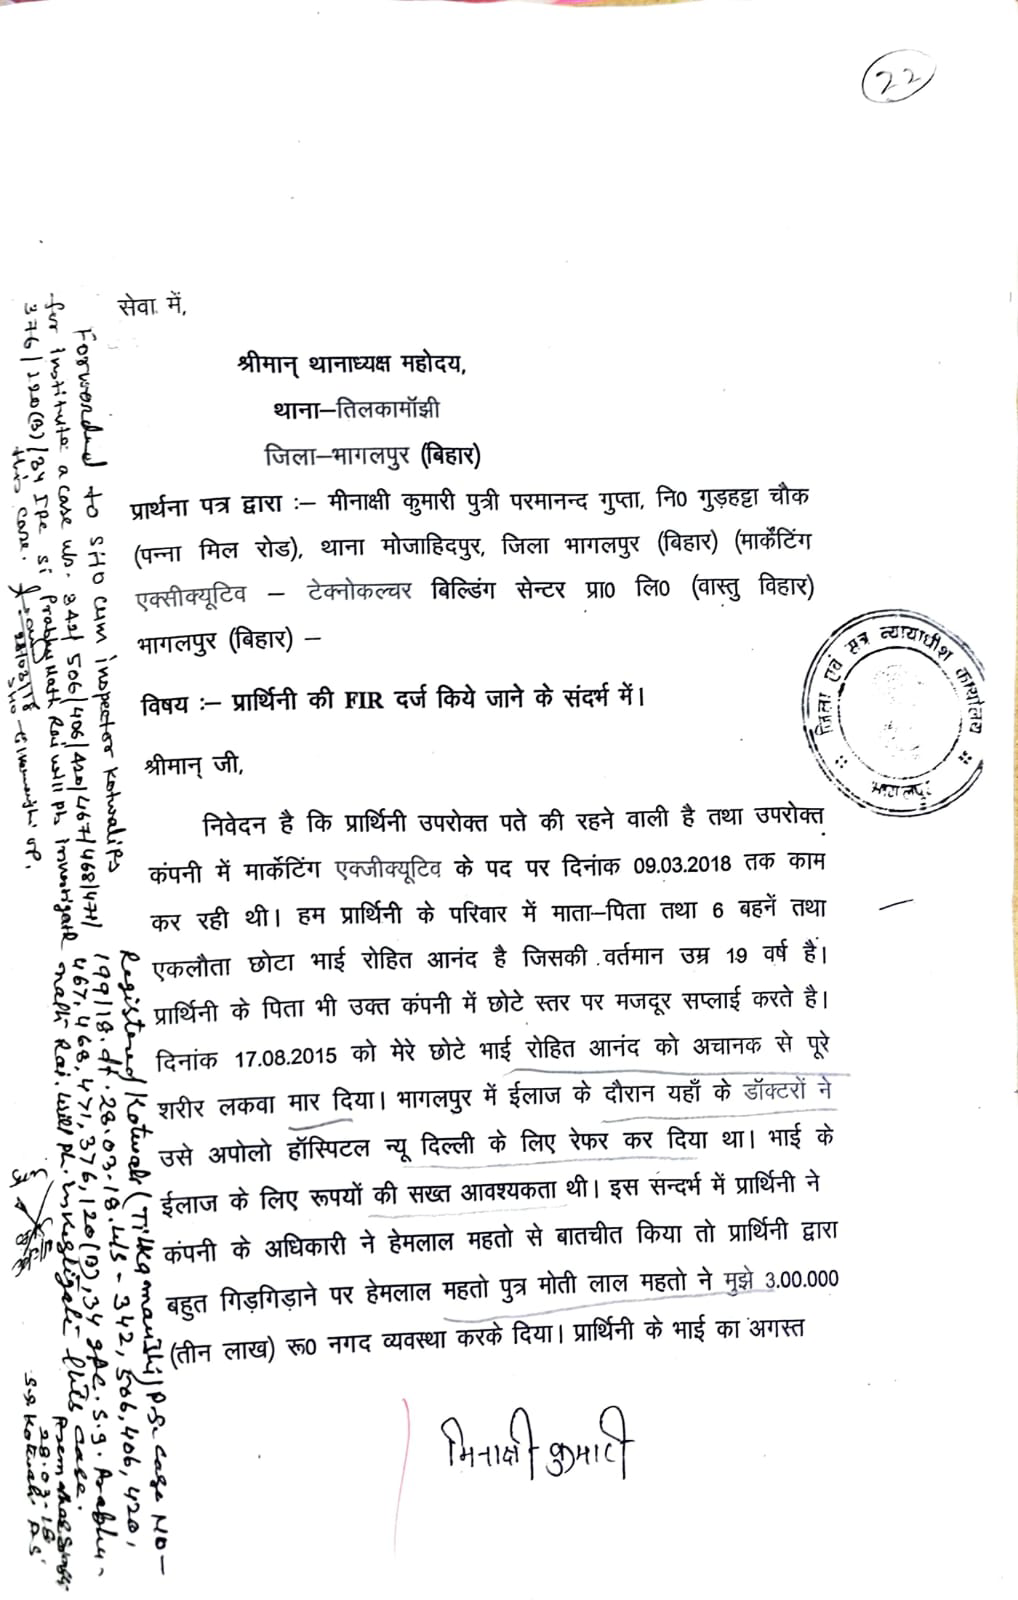 22
सेवा में,
श्रीमान् थानाध्यक्ष महोदय,
थाना–तिलकामॉझी
जिला–भागलपुर (बिहार)
प्रार्थना पत्र द्वारा :– मीनाक्षी कुमारी पुत्री परमानन्द गुप्ता, नि0 गुड़हट्टा चौक
(पन्ना मिल रोड), थाना मोजाहिदपुर, जिला भागलपुर (बिहार) (मार्केटिंग
एक्सीक्यूटिव – टेक्नोकल्चर बिल्डिंग सेन्टर प्रा0 लि0 (वास्तु विहार)
भागलपुर (बिहार) –
विषय :– प्रार्थिनी की FIR दर्ज किये जाने के संदर्भ में।
श्रीमान् जी,
निवेदन है कि प्रार्थिनी उपरोक्त पते की रहने वाली है तथा उपरोक्त
कंपनी में मार्केटिंग एक्जीक्यूटिव के पद पर दिनांक 09.03.2018 तक काम
कर रही थी। हम प्रार्थिनी के परिवार में माता–पिता तथा 6 बहनें तथा
एकलौता छोटा भाई रोहित आनंद है जिसकी वर्तमान उम्र 19 वर्ष है।
प्रार्थिनी के पिता भी उक्त कंपनी में छोटे स्तर पर मजदूर सप्लाई करते है।
दिनांक 17.08.2015 को मेरे छोटे भाई रोहित आनंद को अचानक से पूरे
शरीर लकवा मार दिया। भागलपुर में ईलाज के दौरान यहाँ के डॉक्टरों ने
उसे अपोलो हॉस्पिटल न्यू दिल्ली के लिए रेफर कर दिया था। भाई के
ईलाज के लिए रूपयों की सख्त आवश्यकता थी। इस सन्दर्भ में प्रार्थिनी ने
कंपनी के अधिकारी ने हेमलाल महतो से बातचीत किया तो प्रार्थिनी द्वारा
बहुत गिड़गिड़ाने पर हेमलाल महतो पुत्र मोती लाल महतो ने मुझे 3.00.000
(तीन लाख) रू0 नगद व्यवस्था करके दिया। प्रार्थिनी के भाई का अगस्त
मिनाक्षी कुमारी
जिला एवं सत्र न्यायाधीश कार्यालय
भागलपुर
Forwarded to SHO cum inspector Kotwali PS
for institute a case u/s. 342/506/406/420/467/468/471/
376/120(B)/34 IPC SI Prabhu Nath Rai will pl. investigate
this case.
28/03/18
Registered Kotwali (Tilkamanjhi) P.S. Case No–
199/18. dt. 28.03.18. u/s – 342, 506, 406, 420,
467, 468, 471, 376, 120(B), 34 IPC. S.I. Prabhu–
nath Rai. will pl. investigate this case.
28.03.18
Kotwali P.S.